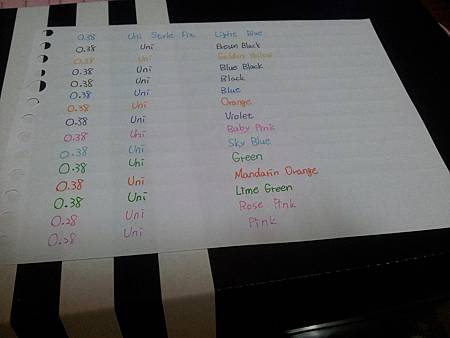 0.38 Uni Style Fit Light Blue
0.38 Uni Brown Black
0.38 Uni Golden Yellow
0.38 Uni Blue Black
0.38 Uni Black
0.38 Uni Blue
0.38 Uni Orange
0.38 Uni Violet
0.38 Uni Baby Pink
0.38 Uni Sky Blue
0.38 Uni Green
0.38 Uni Mandarin Orange
0.38 Uni Lime Green
0.28 Uni Rose Pink
0.28 Uni Pink